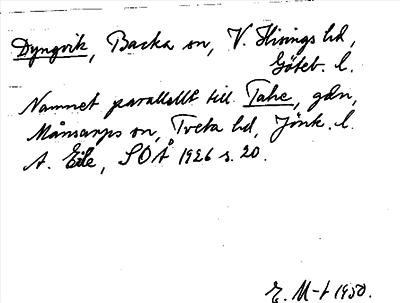 Dyngvik, Backa sn, V. Hisings hd,
Göteb. l.
Namnet parallellt till Tahe, gdn,
Månsarps sn, Tveta hd, Jönk. l.
A. Eile, SOÅ 1926 s. 20.
E. M-t 1950.